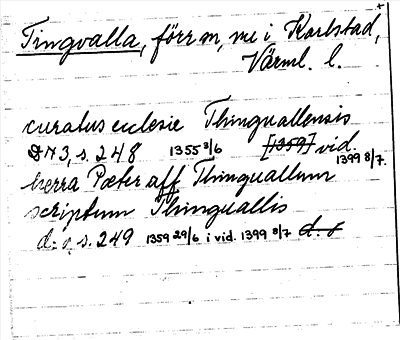 Tingvalla, förr sn, nu i Karlstad,
Värml. l.
curatus ecclesie Thinguallensis
DN 3, s. 248 1355 3/6 [1359] vid. 1399 8/7.
herra Pæter aff Thinguallum
scriptum Thinguallis
d:o, s. 249 1359 29/6 i vid. 1399 8/7 d:o